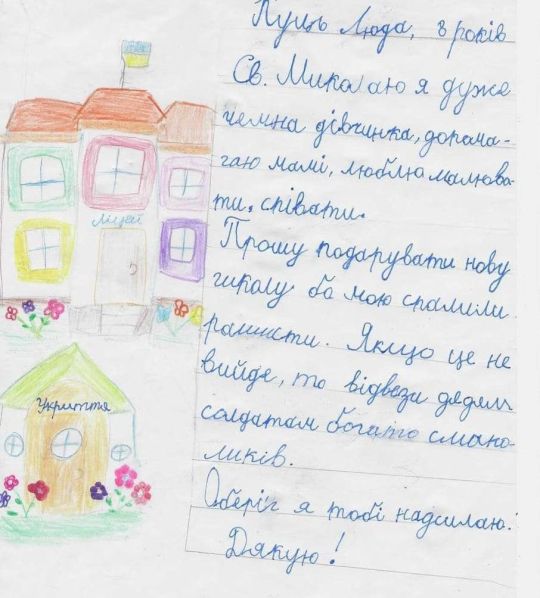 Пуць Люда, 8 років
Св. Миколаю я дуже
чемна дівчинка, допома-
гаю мамі, люблю малюва-
ти, співати.
Прошу подарувати нову
школу бо мою спалили
рашисти. Якщо це не
вийде, то відвези дядям
солдатам богато смако-
ликів.
Оберіг я тобі надсилаю.
Дякую!
Ліцей
Укриття